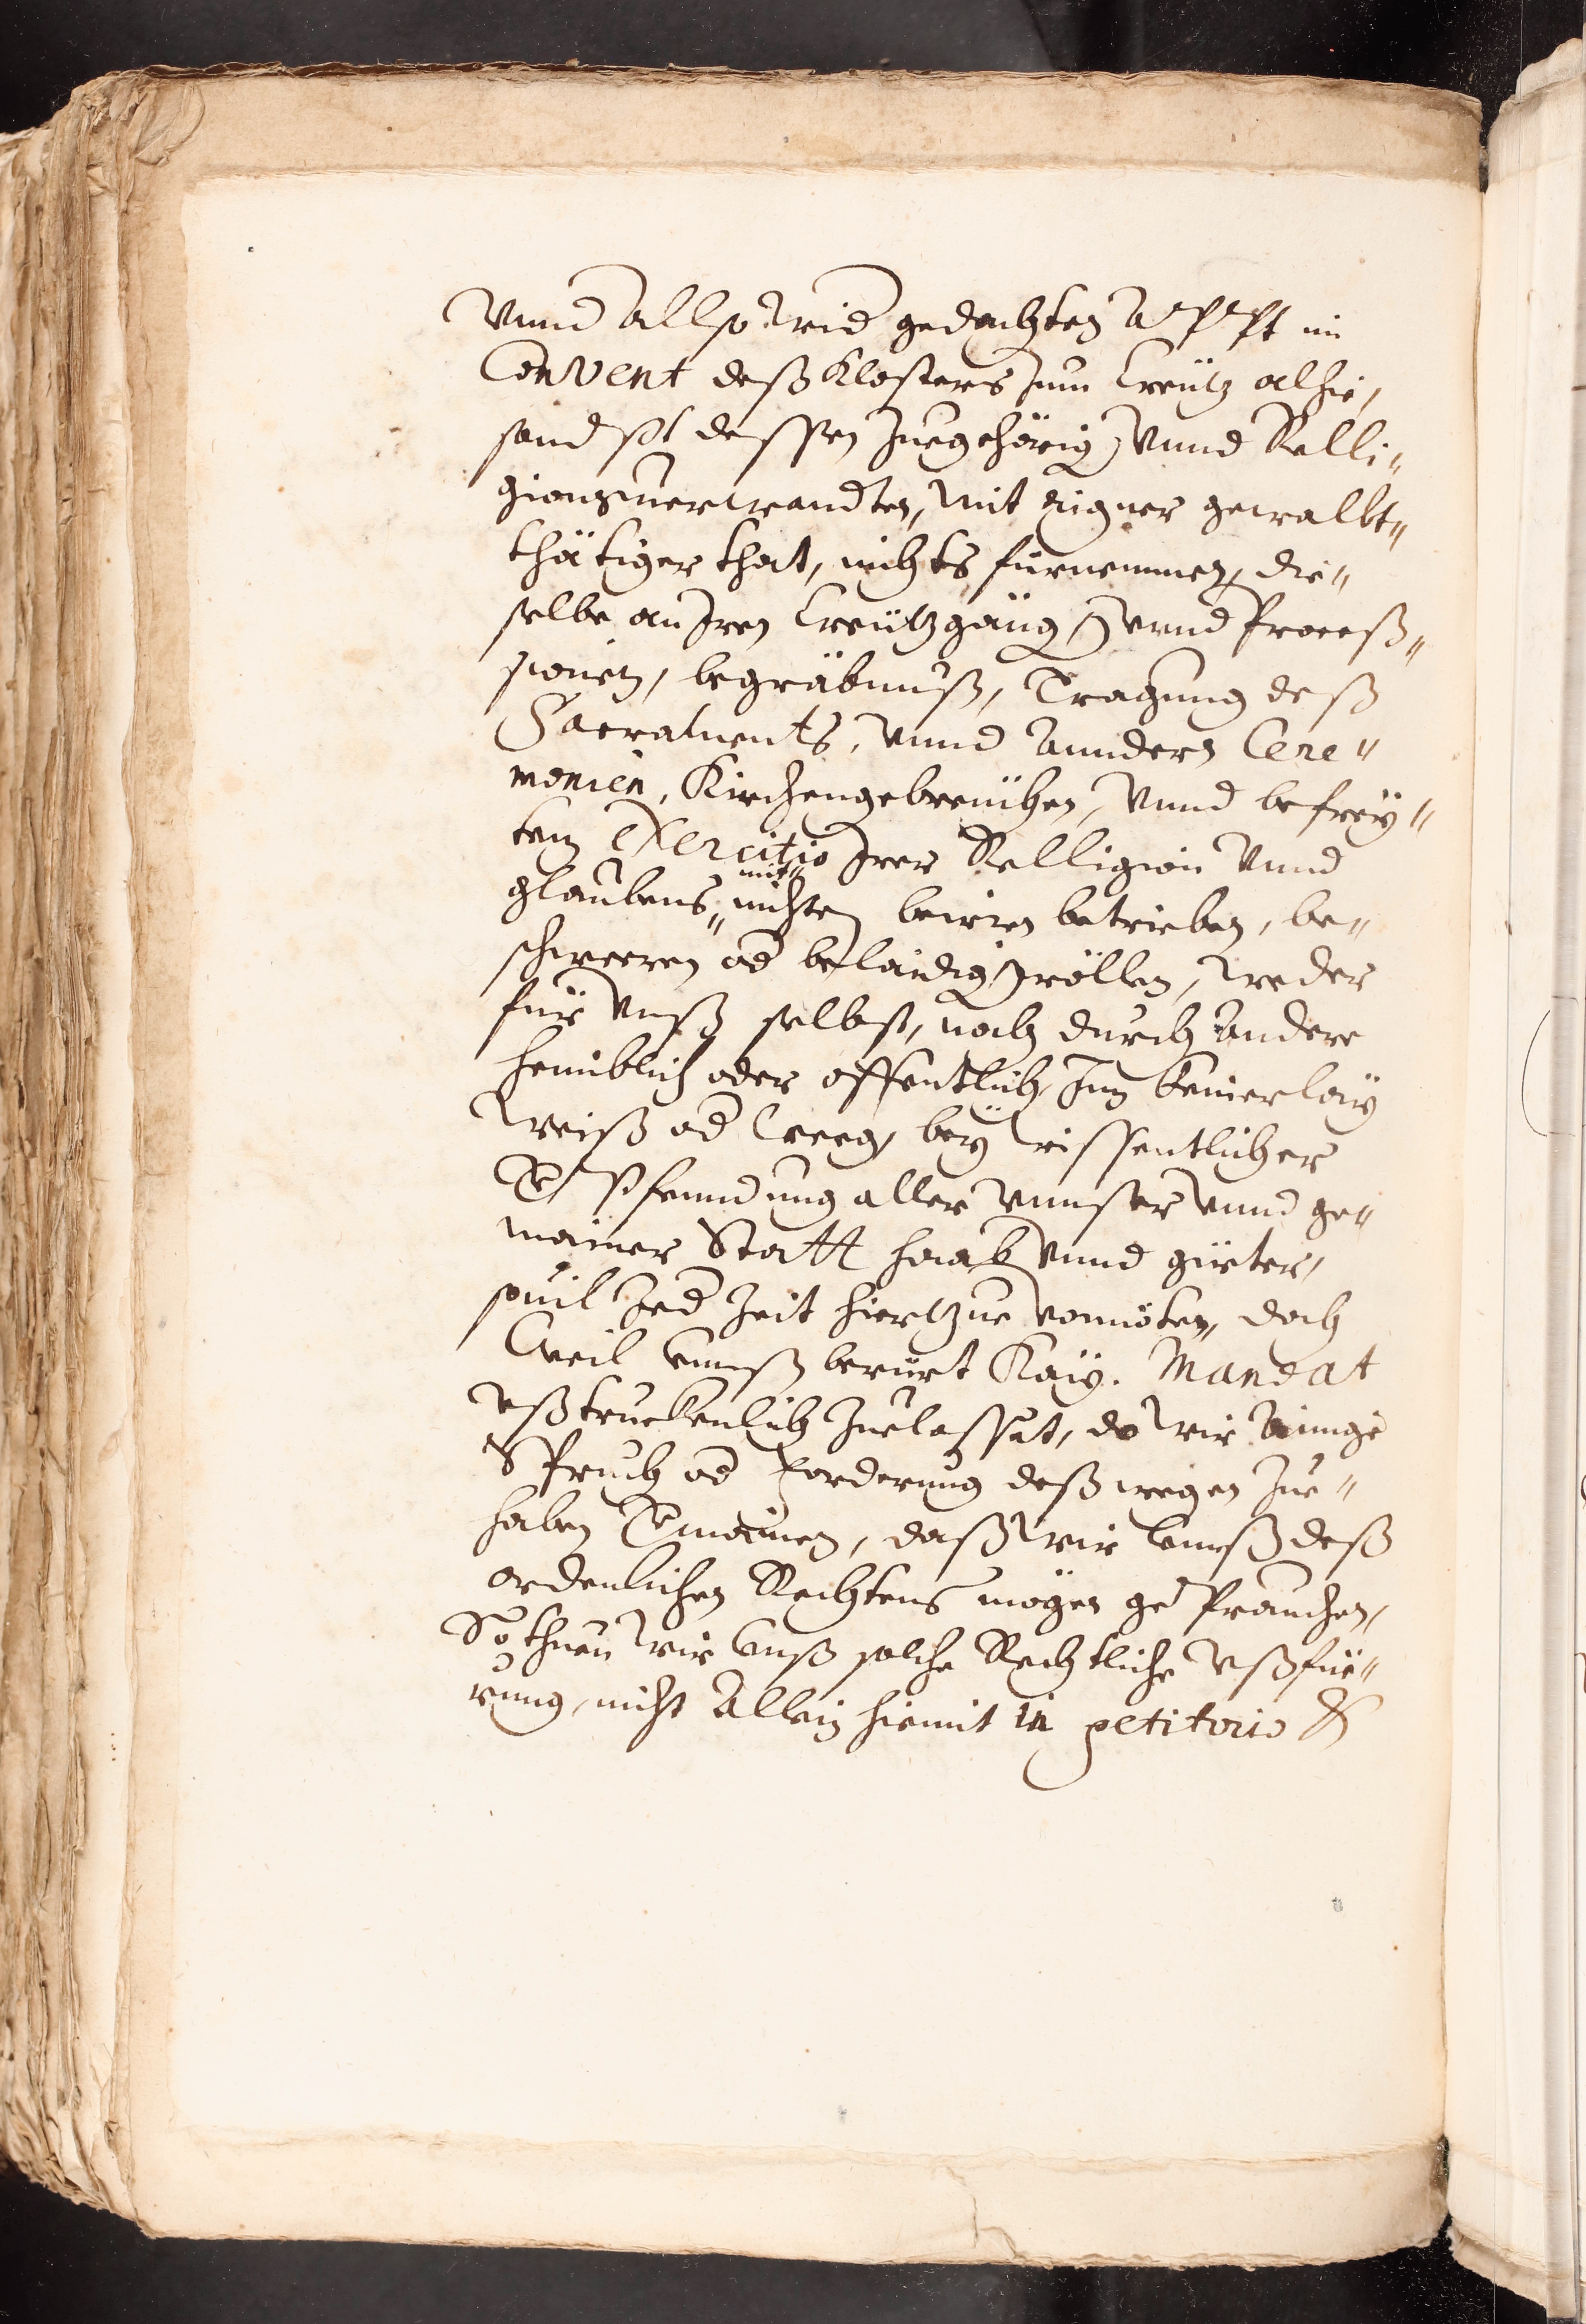 Vnnd allso wid gedachten Appt im
Convent deß Klosters zum Creütz alhie,
sandst dessen zuegehörig vnnd Relli„
gionsuerwandten, mit eigner gewallt„
thätiger that, nichts fürnemmen, die„
selbe an Jren Creützgäng vnnd Proceß„
sionen, begräbnuß, Tragung deß
Sacraments, vnnd anndern Cere„
monien, Kirchengebreüchen, vnnd befrey„
ten exercitio Jrer Relligion vnnd
glaubens„ mit„ nichten beirren betrieben, be„
schweeren od belaidig wöllen, weder
für vnß selbst, noch durch andere
heimblich oder offentlich, Inn keinerlay
weiß od weeg, bey wissentlicher
Verpfenndung aller vnnser vnnd ge„
mainer Statt haab vnnd güeter,
souil Jed Zeit hierzue vonnöten, doch
weil vnnß berürt Kay. Mandat
vßtruckenlich zuelasset, do wir ainige
Spruch od forderung deßwegen zue„
haben vermainen, daß wir vnnß deß
ordenlichen Rechtens mögen geprauchen,
So thuen wir vnß solche Rechtliche vßfüe„
rung, nicht allein hiemit in petitorio &